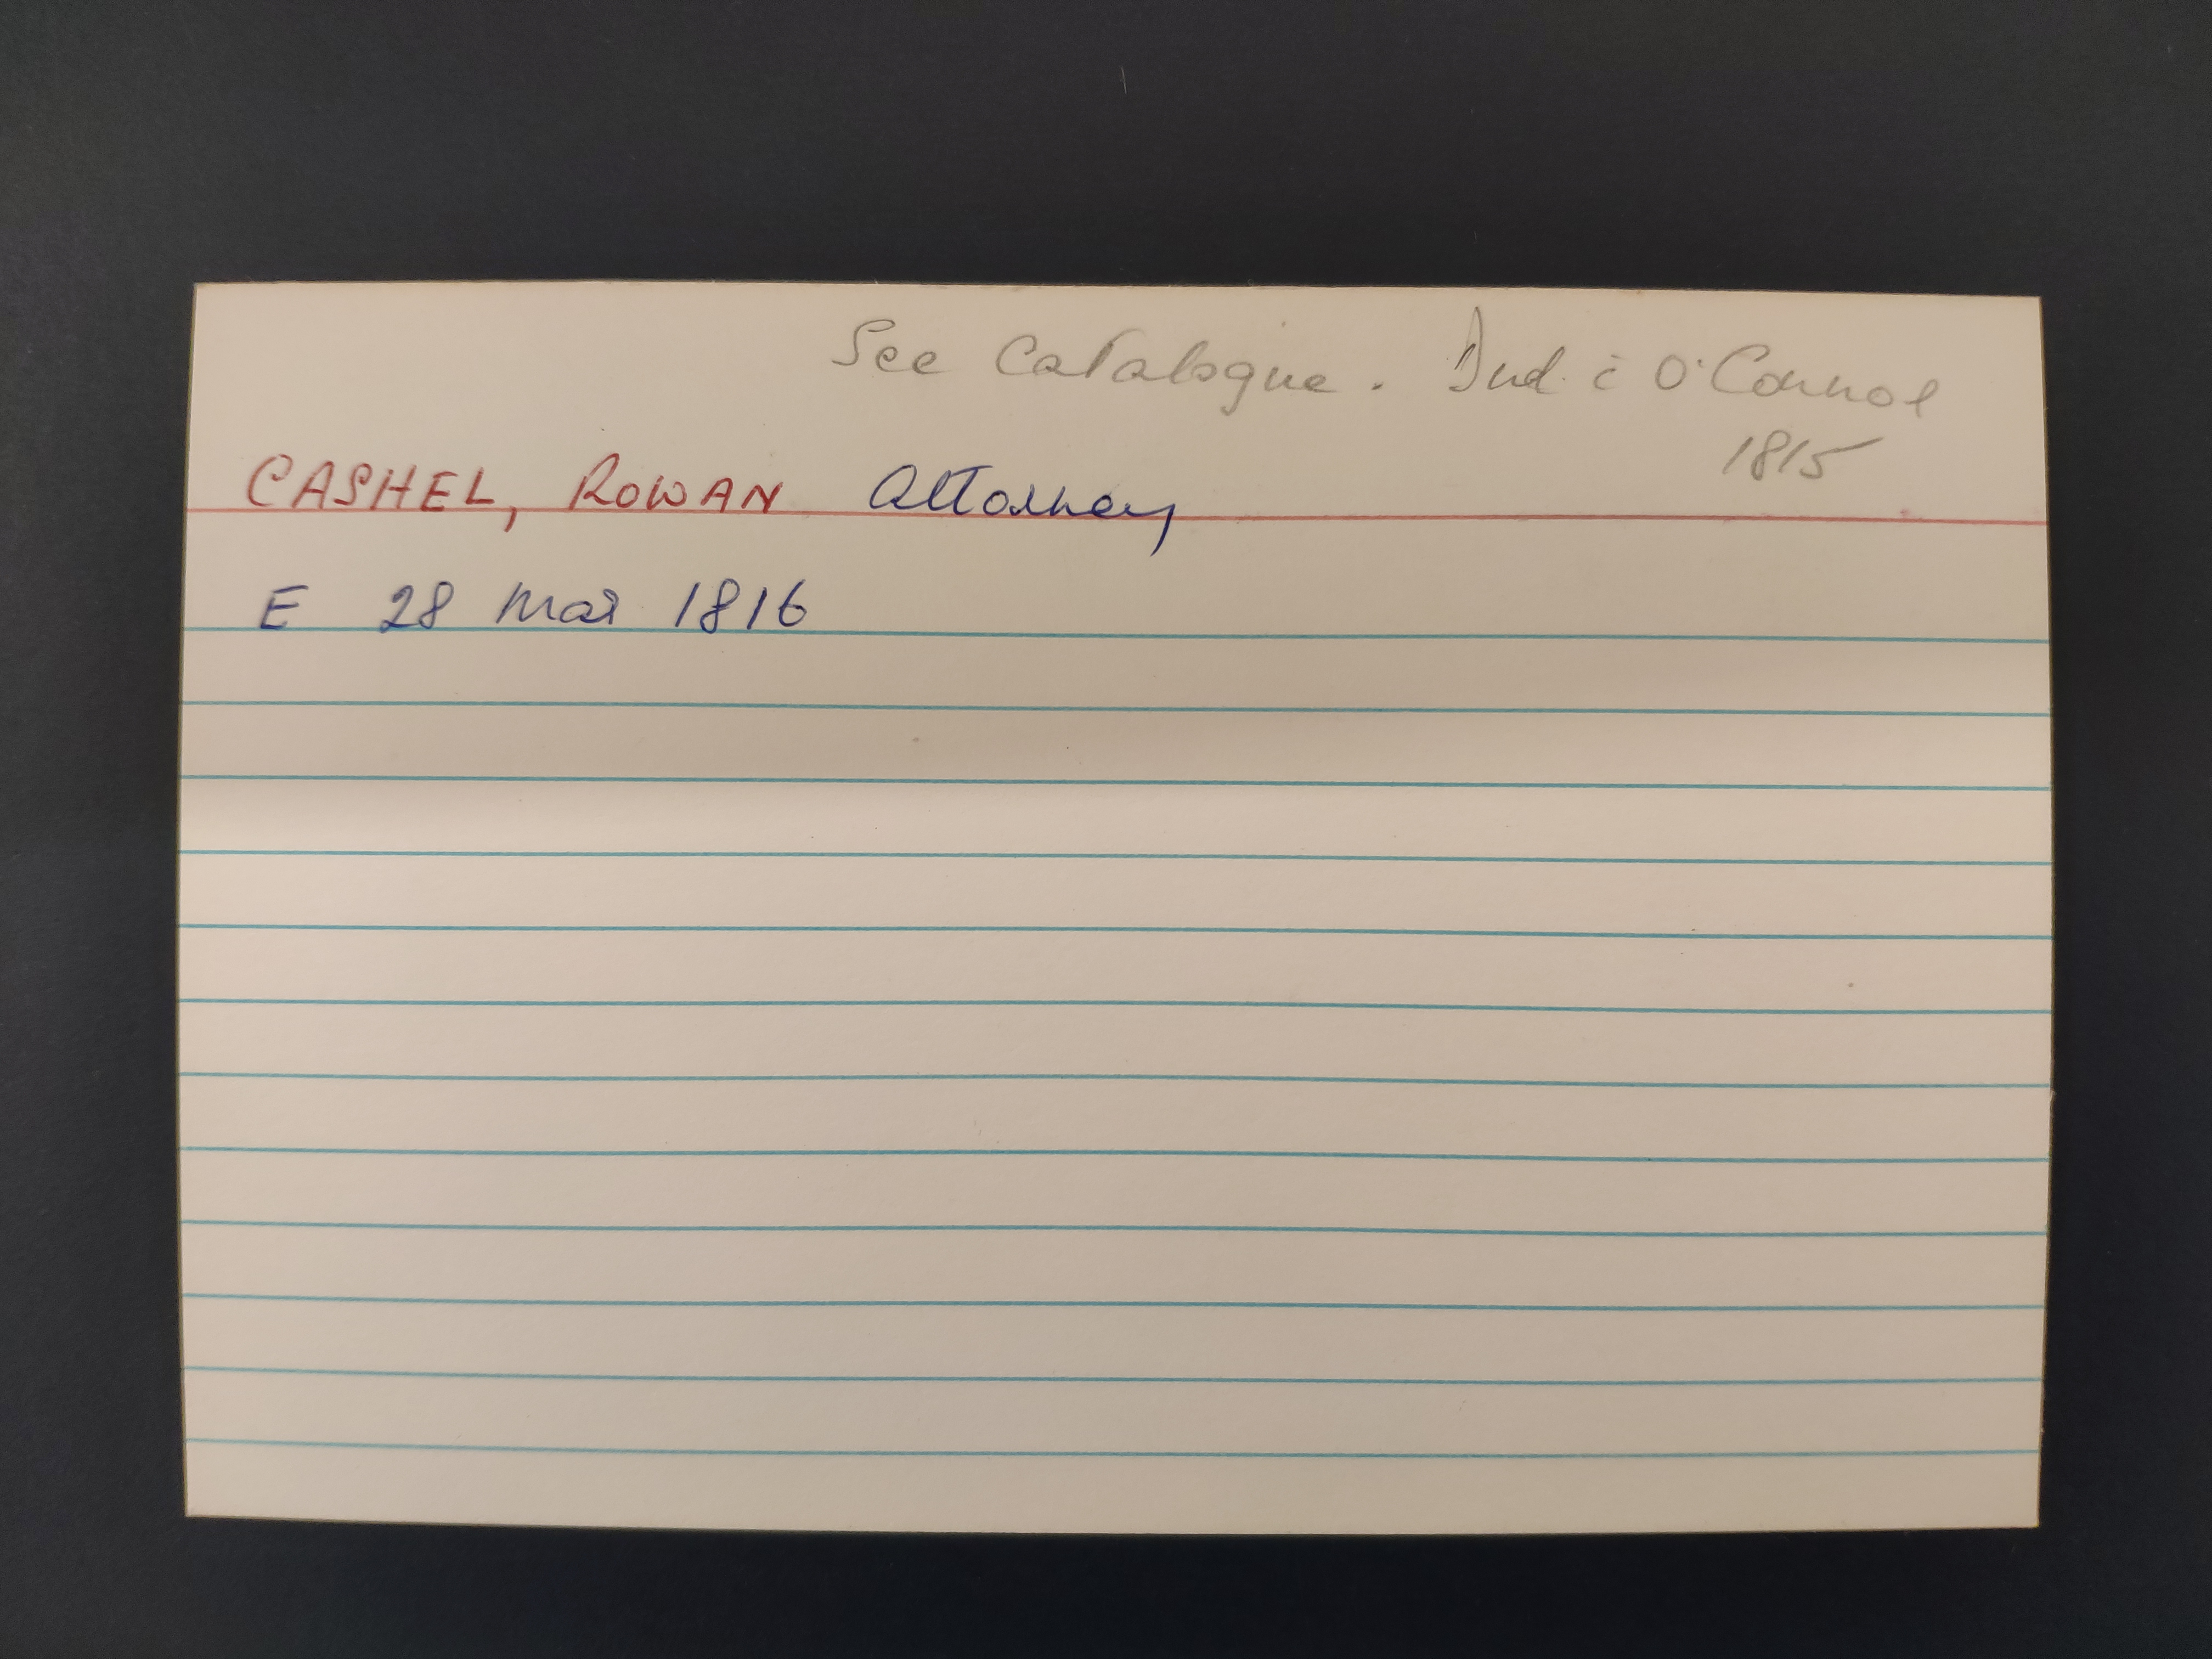 See Catalogue. Ind. c̄ O'Connor
1815
CASHEL, ROWAN Attorney
E 28 Mar 1816